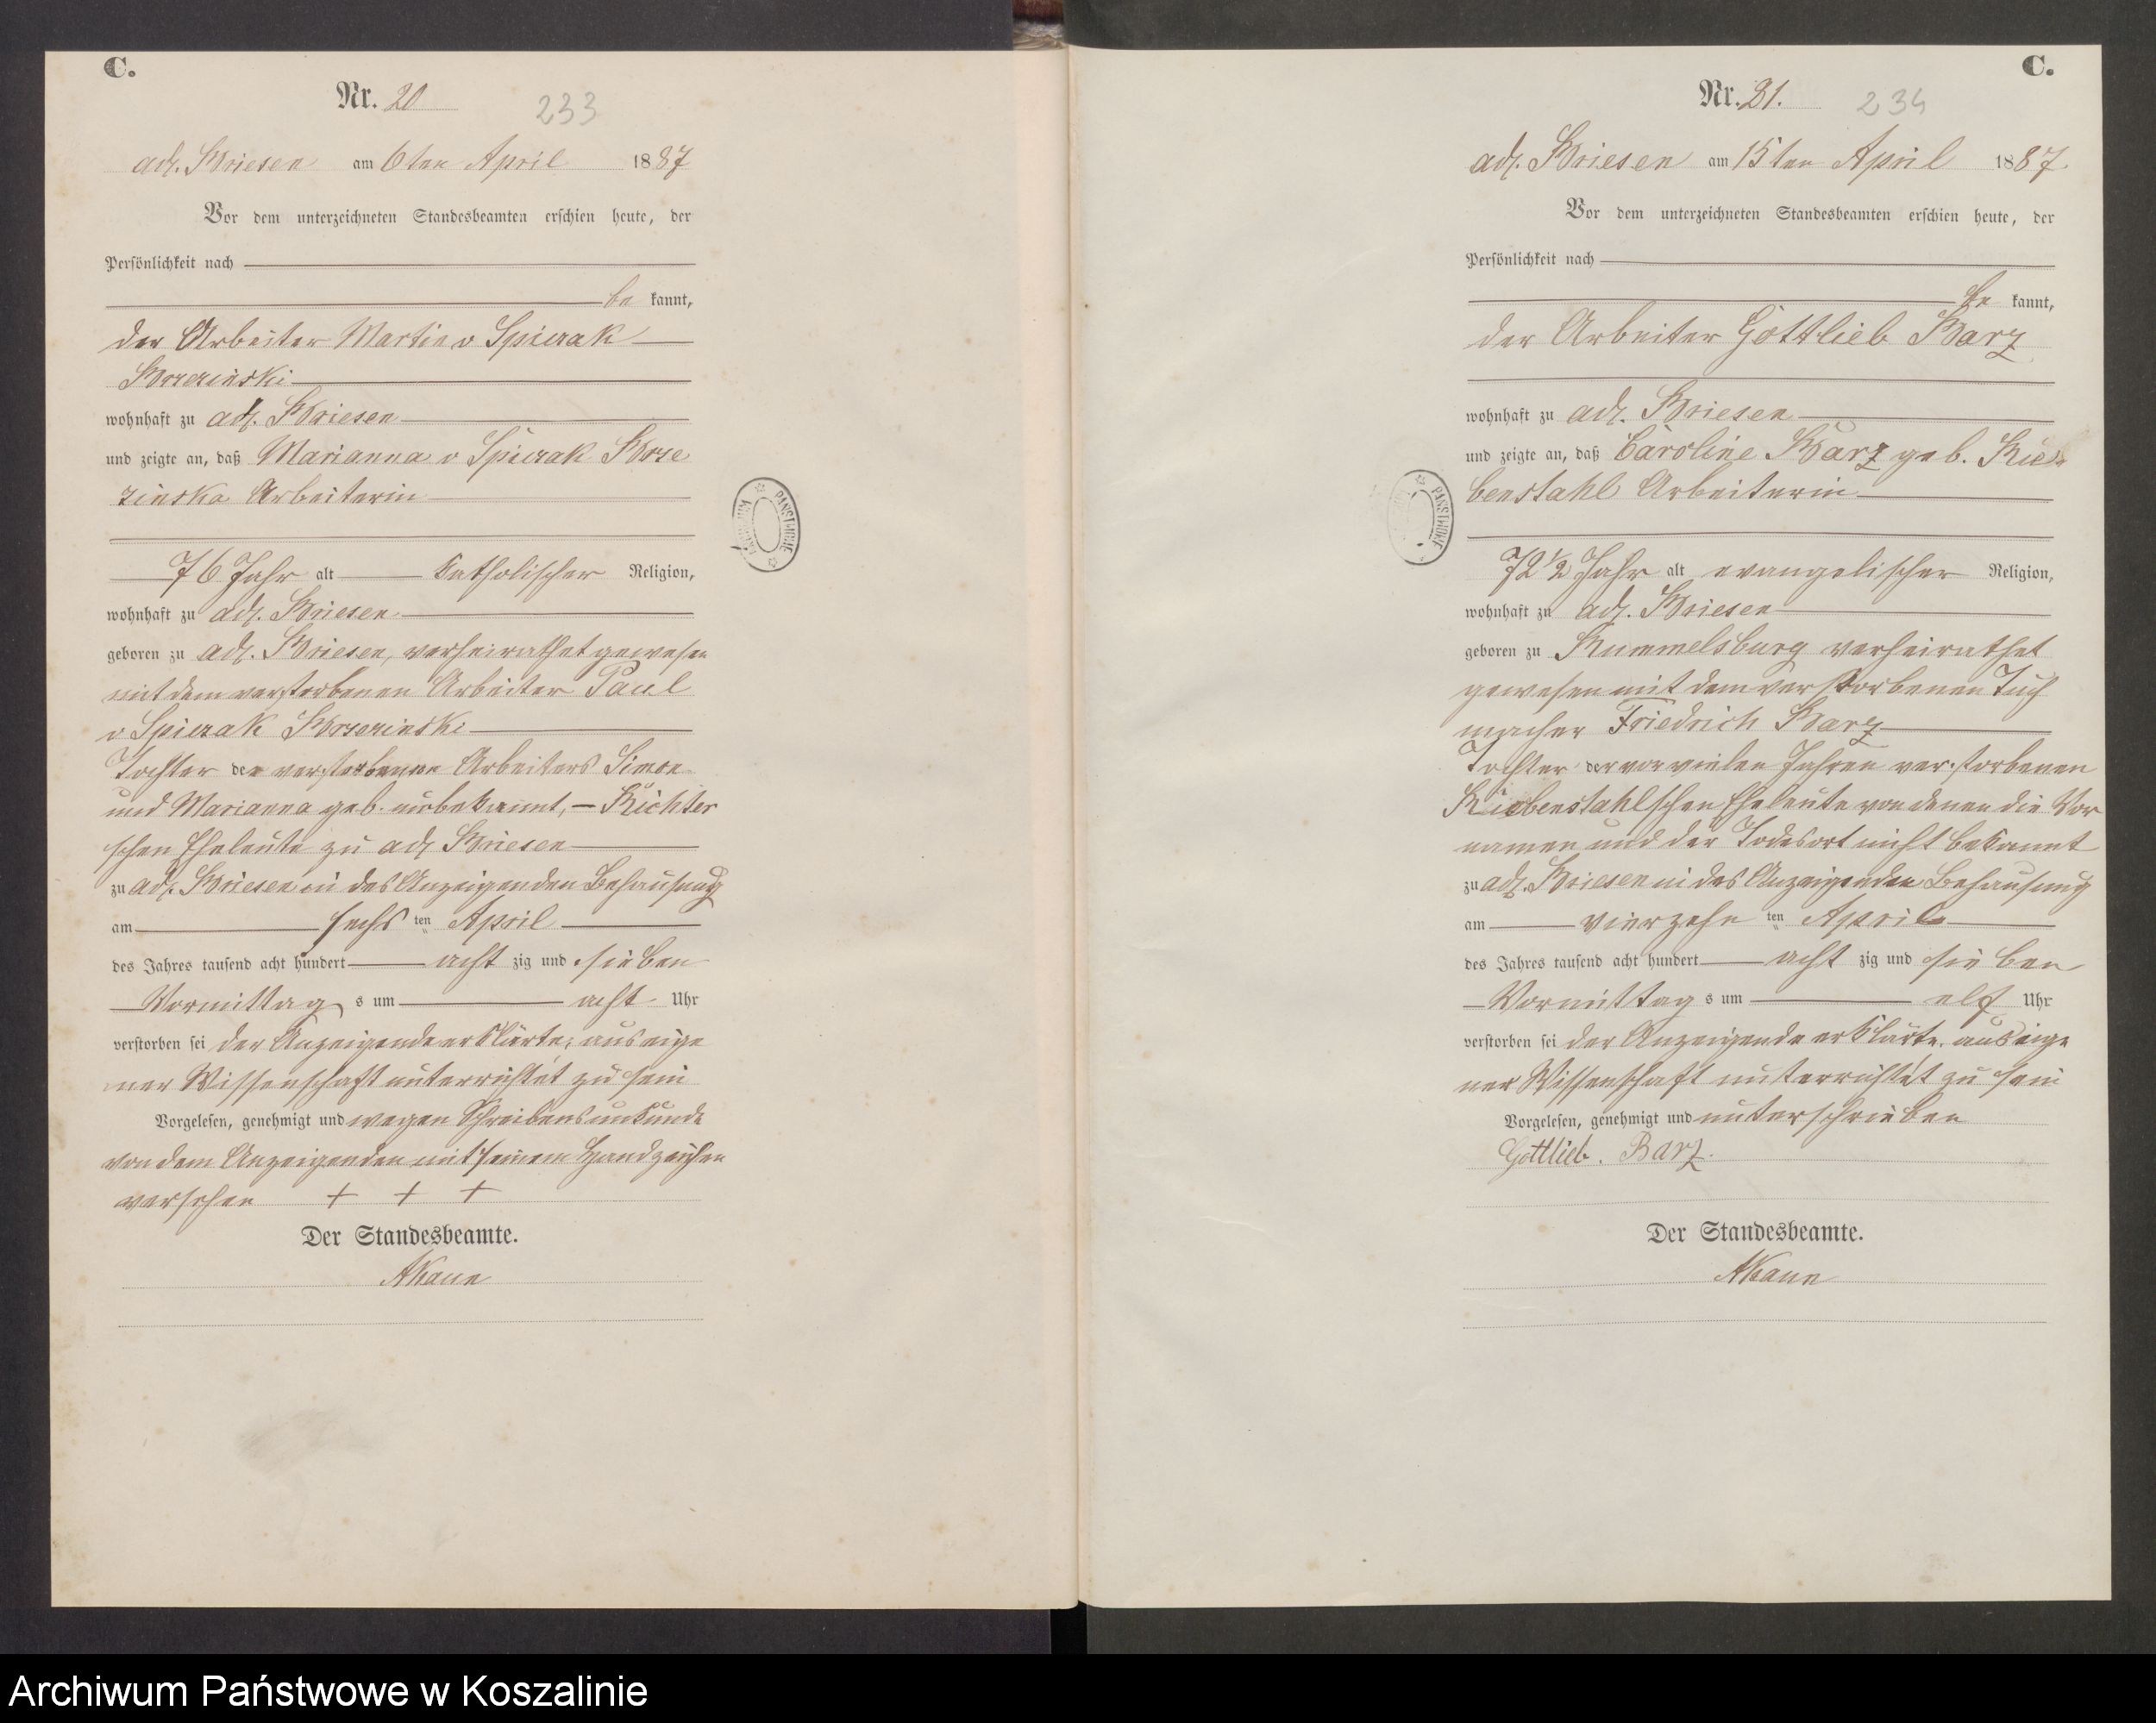 C.
Nr. 20
233
adl. Briesen am 6ten April 1887
Vor dem unterzeichneten Standesbeamten erschien heute, der
Persönlichkeit nach
be kannt,
der Arbeiter Martin v Spiczak
Brzezinski
wohnhaft zu adl. Briesen
und zeigte an, daß Marianna v Spiczak Brze
zinska Arbeiterin
76 Jahr alt katholischer Religion,
wohnhaft zu adl. Briesen
geboren zu adl. Briesen, verheirathet gewesen
mit dem verstorbenen Arbeiter Paul
v Spiczak Brzezinski
Tochter der verstorbenen Arbeiters Simon
und Marianna geb. unbekannt, – Richter
schen Eheleute zu adl Briesen
zu adl. Briesen in des Anzeigenden Behausung
am sechs ten April
des Jahres tausend acht hundert acht zig und sieben
Vormittag s um acht Uhr
verstorben sei der Anzeigende erklärte, aus eige
ner Wissenschaft unterrichtet zu sein
Vorgelesen, genehmigt und wegen Schreibensunkunde
von dem Anzeigenden mit seinem Handzeichen
versehen + + +
Der Standesbeamte.
C.
Nr. 21.
234
adl. Briesen am 15ten April 1887.
Vor dem unterzeichneten Standesbeamten erschien heute, der
Persönlichkeit nach
be kannt,
der Arbeiter Gottlieb Barz
wohnhaft zu adl. Briesen
und zeigte an, daß Caroline Barz geb. Rie
benstahl Arbeiterin
72 1/2 Jahr alt evangelischer Religion,
wohnhaft zu adl. Briesen
geboren zu Rummelsburg verheirathet
gewesen mit dem verstorbenen Tuch
macher Friedrich Barz
Tochter der vor vielen Jahren verstorbenen
Riebenstahlschen Eheleute von denen die Vor
namen und der Todesort nicht bekannt
zu adl. Briesen in des Anzeigenden Behausung
am vierzehn ten April
des Jahres tausend acht hundert acht zig und sieben
Vormittag s um elf Uhr
verstorben sei der Anzeigende erklärte, aus eige
ner Wissenschaft unterrichtet zu sein
Vorgelesen, genehmigt und unterschrieben
Gottlieb. Barz.
Der Standesbeamte.
Archiwum Państwowe w Koszalinie